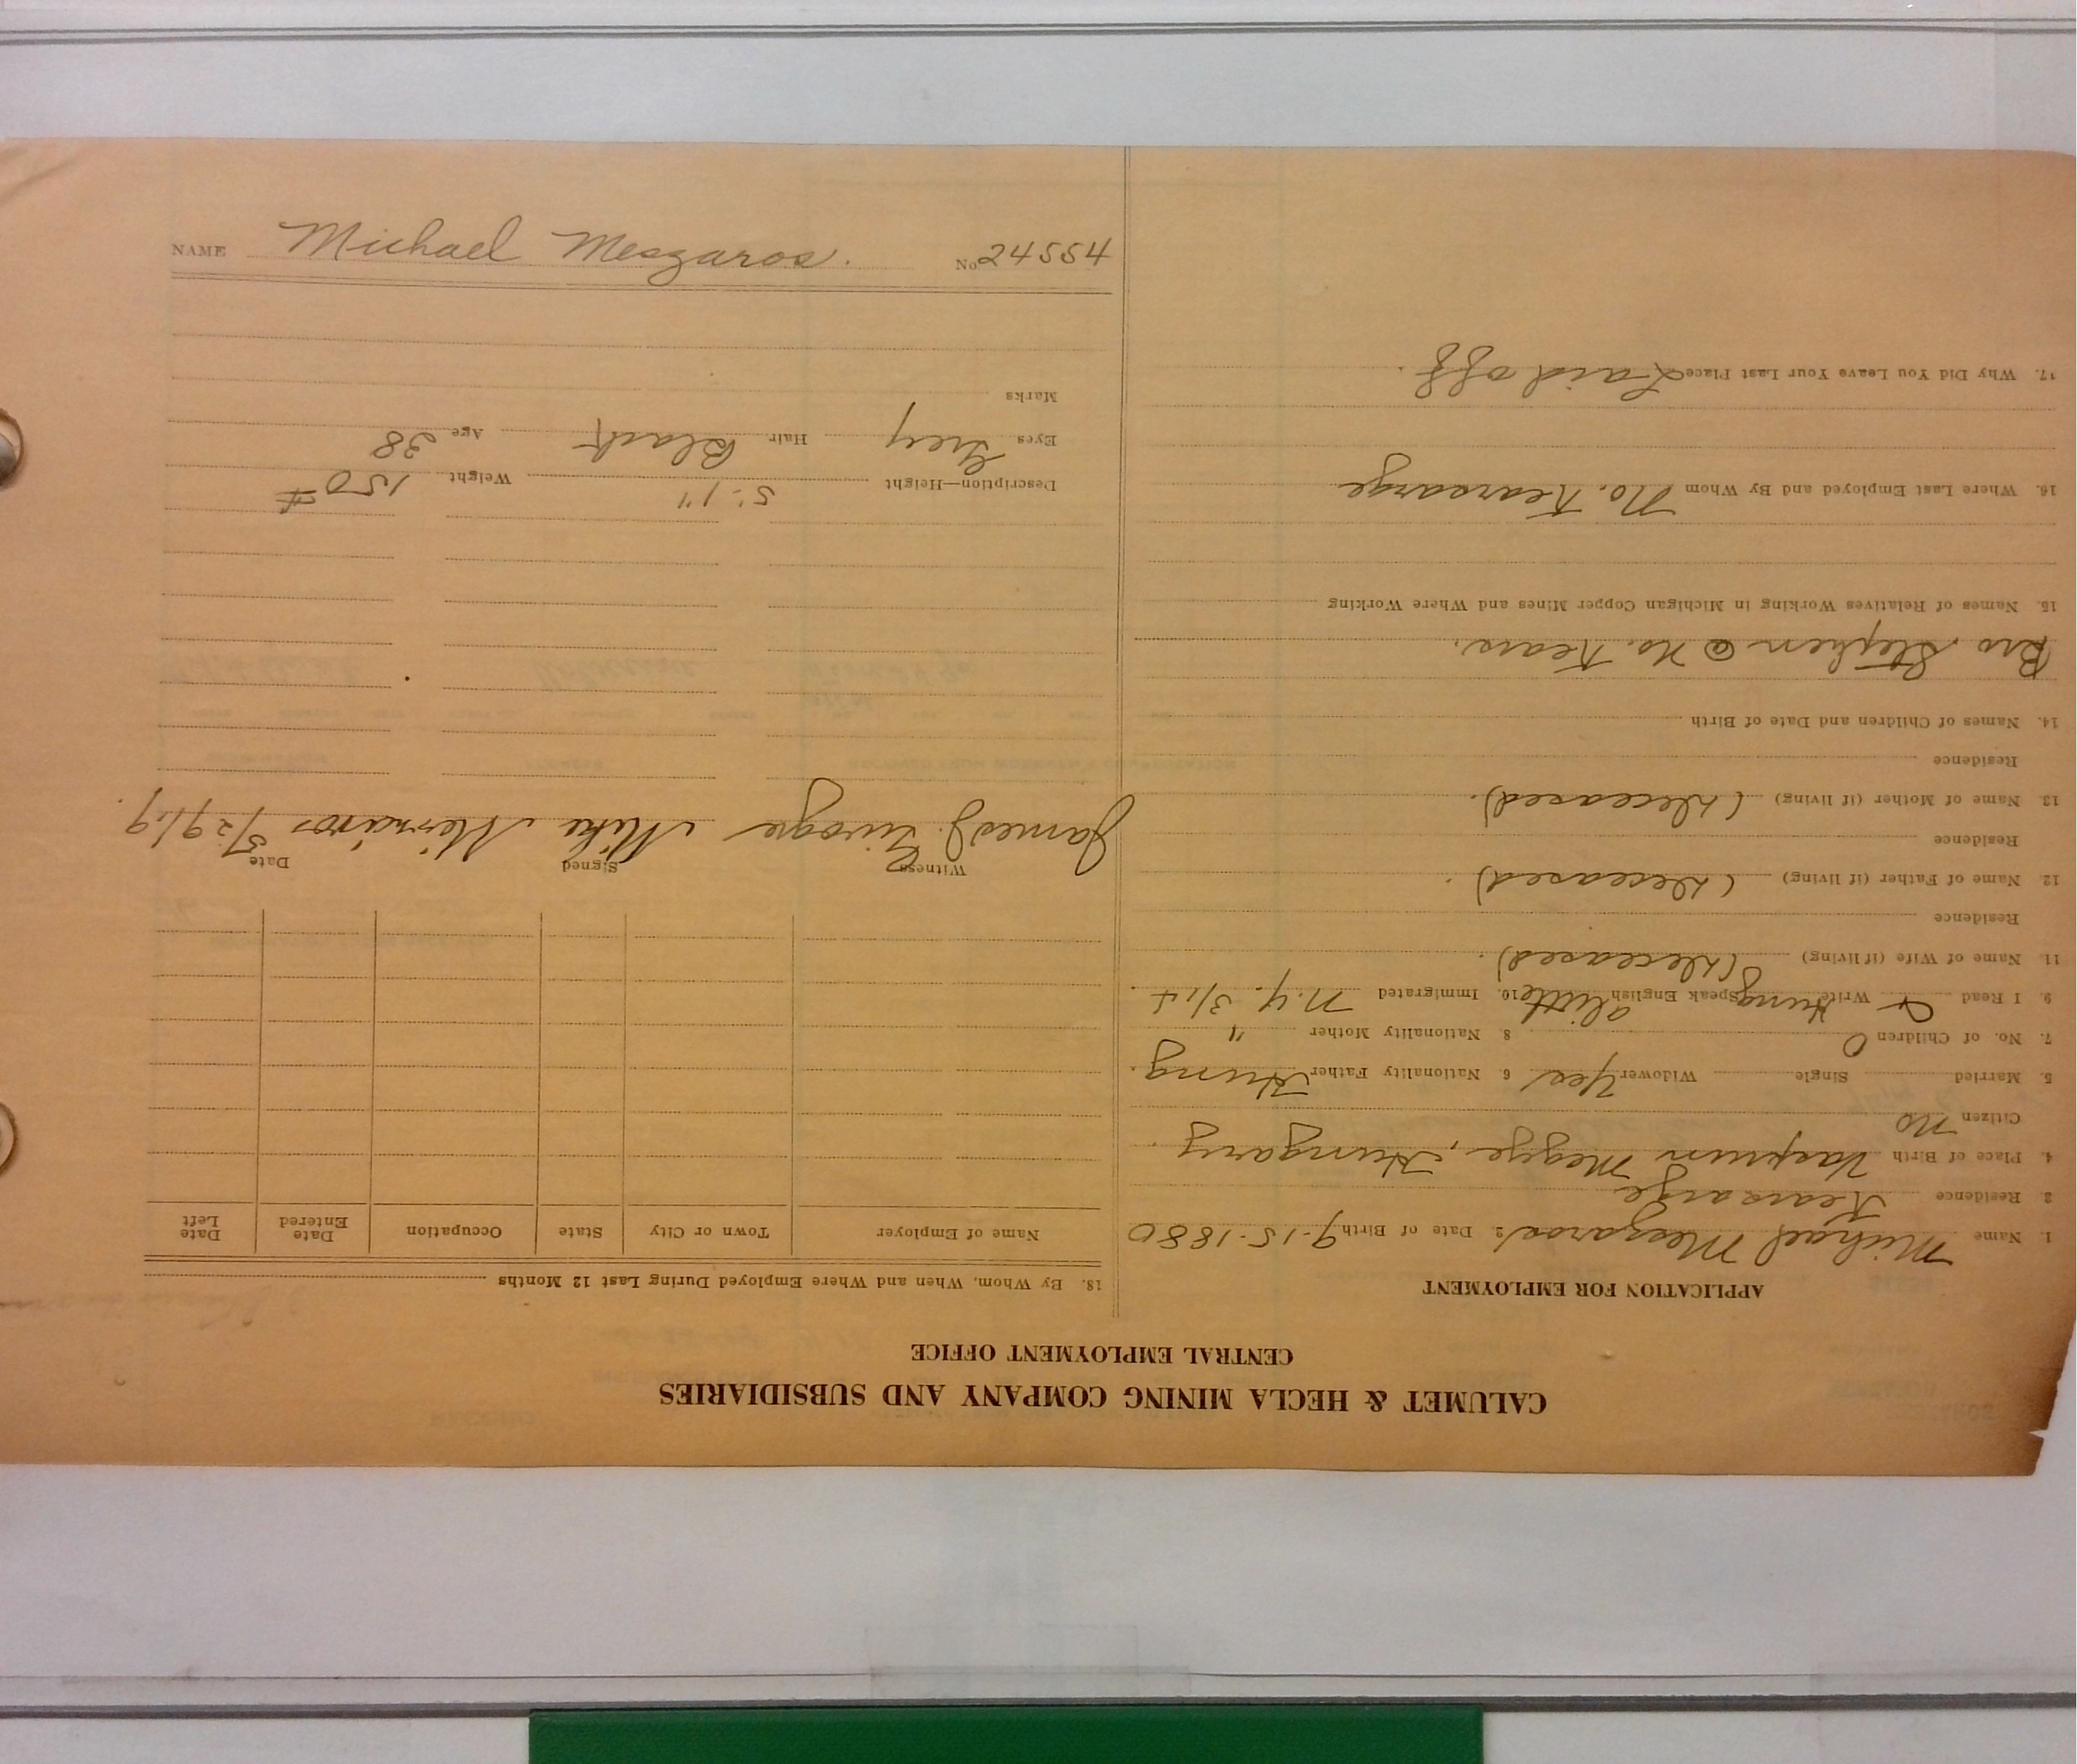 NAME Michael Meszaros. No 24554
CALUMET & HECLA MINING COMPANY AND SUBSIDIARIES
CENTRAL EMPLOYMENT OFFICE
APPLICATION FOR EMPLOYMENT
1. Name Michael Meszaros 2. Date of Birth 9-15-1880
3. Residence Kearsarge
4. Place of Birth Vasprim Megye, Hungary
Citizen No
5. Married Single Widower Yes 6. Nationality Father Hung.
7. No. of Children 0 8 Nationality Mother "
9. I Read Write Hung Speak English a little 10. Immigrated N.Y. 3/14.
11. Name of Wife (if living) (Deceased).
Residence
12. Name of Father (if living) (Deceased).
Residence
13. Name of Mother (if living) (Deceased).
Residence
14. Names of Children and Date of Birth
15. Names of Relatives Working in Michigan Copper Mines and Where Working
Bro Stephen @ No. Kears.
16. Where Last Employed and By Whom No. Kearsarge
17. Why Did You Leave Your Last Place Laid off.
18. By Whom, When and Where Employed During Last 12 Months
Name of Employer Town or City State Occupation Date Entered Date Left
Witness Signed Date
James J. Mike Mészáros 5/29/19.
Description—Height 5'-1" Weight 150 #
Eyes Grey Hair Black Age 38
Marks